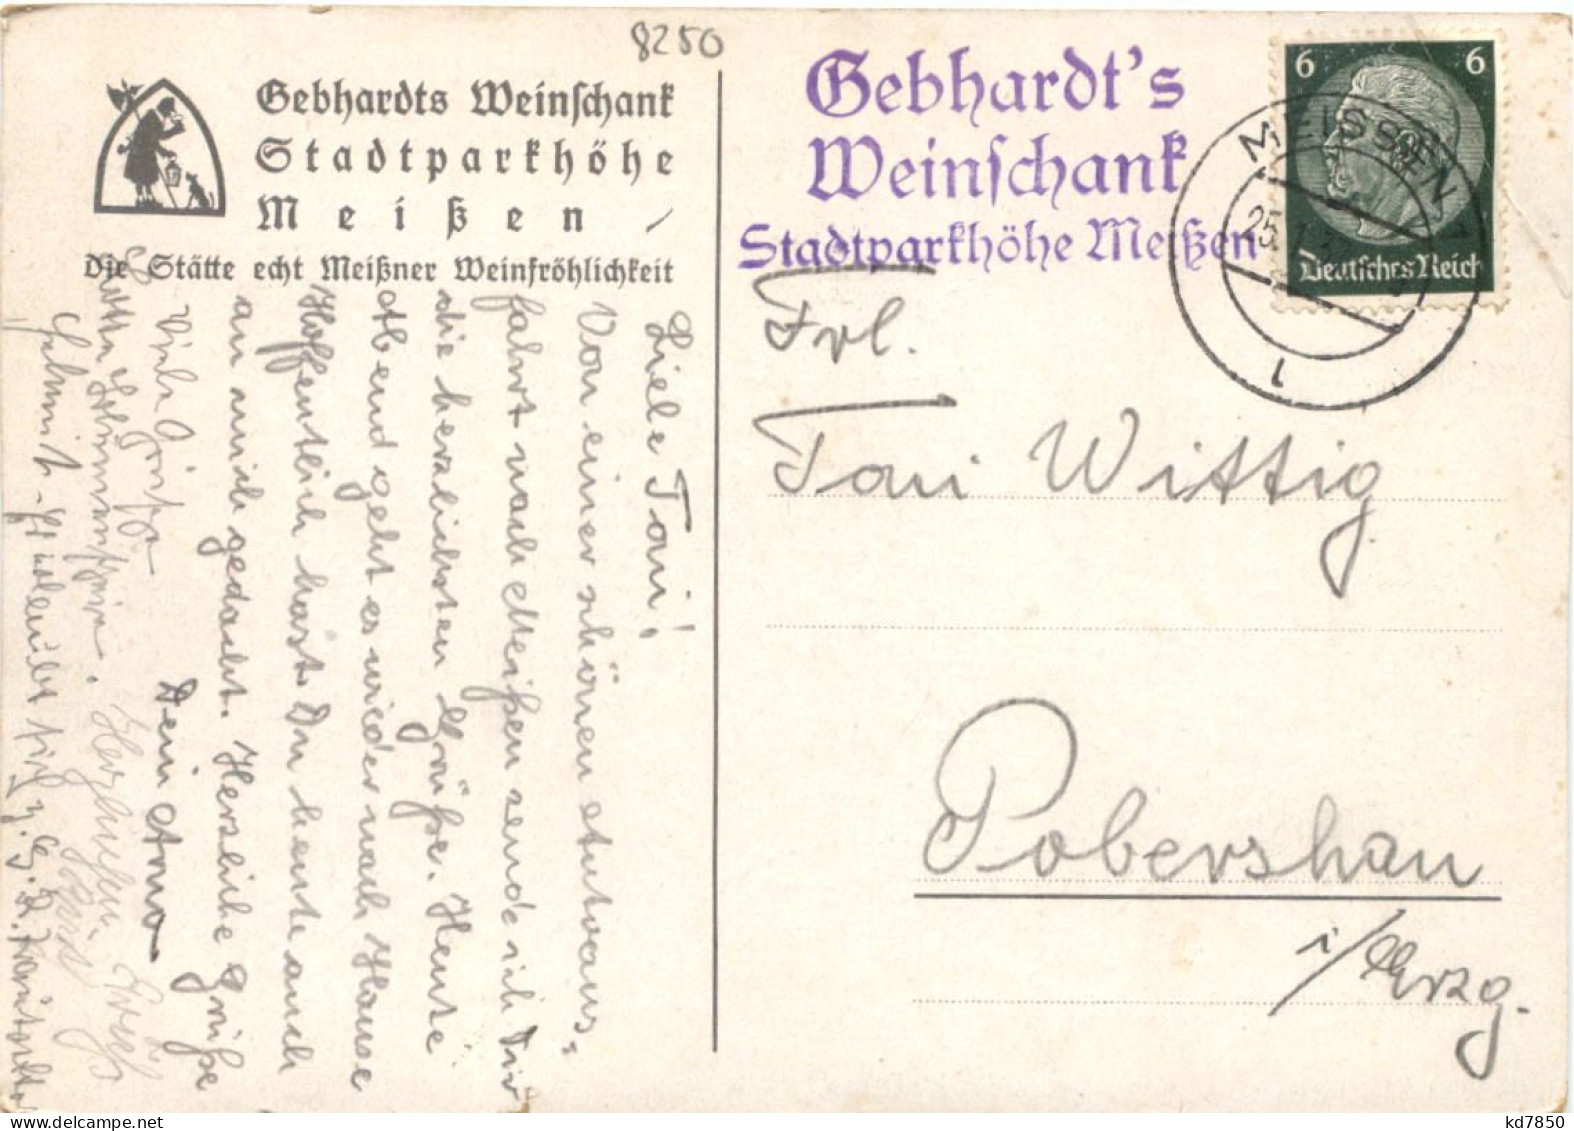 8250
Gebhardts Weinschank
Stadtparkhöhe
Meißen
Die Stätte echt Meißner Weinfröhlichkeit
Gebhardt's
Weinschank
Stadtparkhöhe Meißen
6 6
Deutsches Reich
MEISSEN 1
25.1.
Frl.
Toni Wittig
Pobershau
i/Erzg.
Liebe Toni!
Von einer schönen Autoaus-
fahrt nach Meißen sende ich Dir
die herzlichsten Grüße. Heute
Abend geht es wieder nach Hause
Hoffentlich hast Du heute auch
an mich gedacht. Herzliche Grüße
Dein Arno
Viele Grüße
Herzlichen Gruß
www.delcampe.net
kd7850